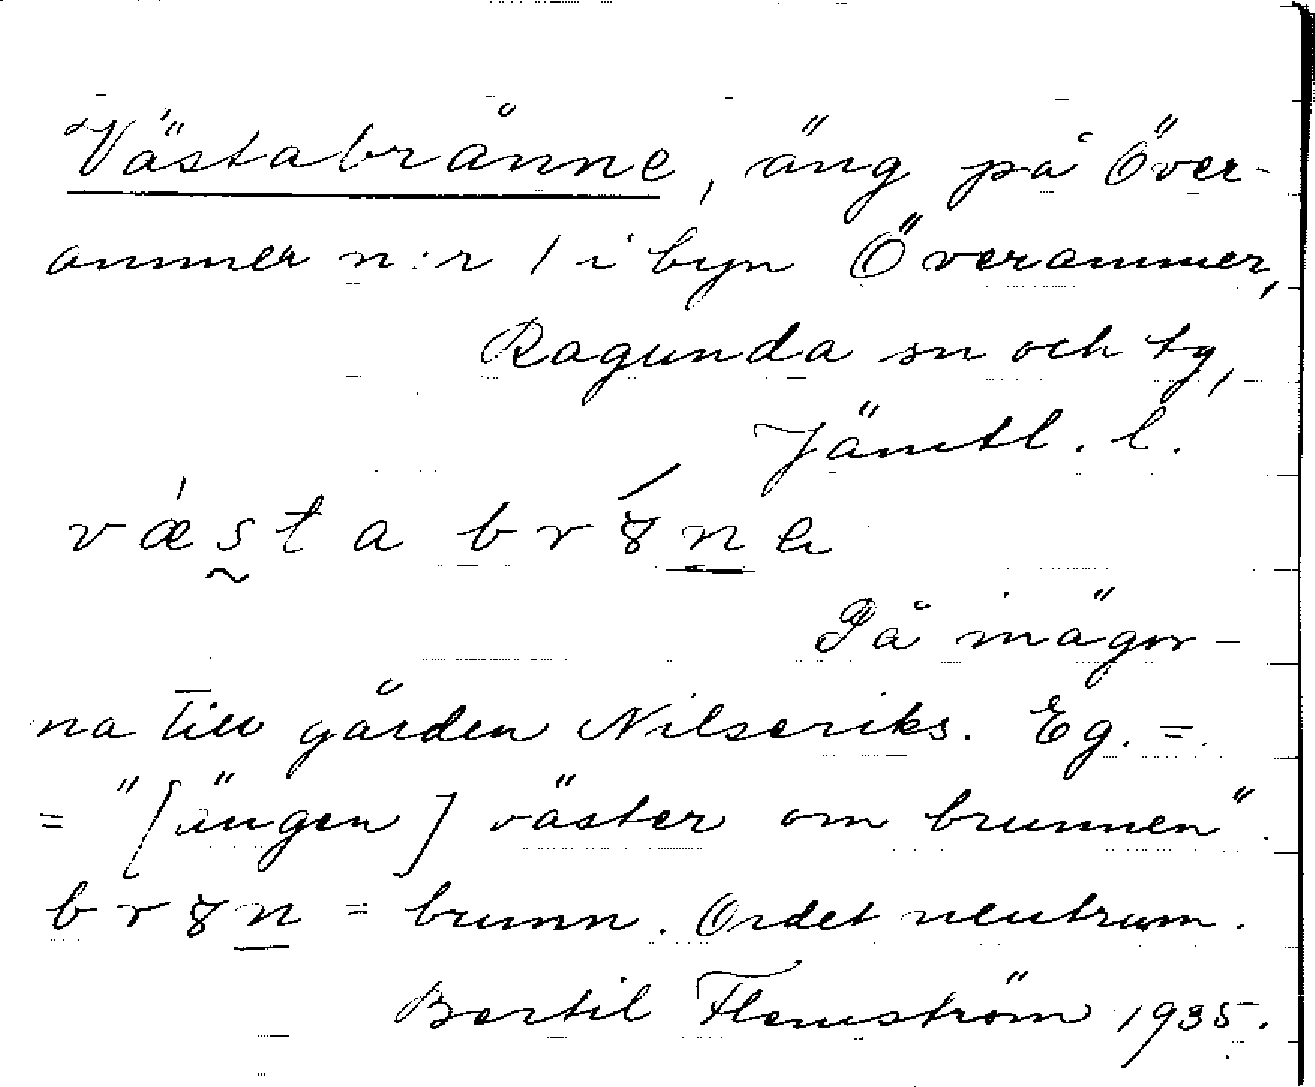 Västabrånne, äng på Över-
ammer n:r 1 i byn Överammer,
Ragunda sn och tg,
Jämtl. l.
væ´sta br8´ne
På inägor-
na till gården Nilseriks. Eg. =
= "[ängen] väster om brunnen".
br8n = brunn. Ordet neutrum.
Bertil Flemström 1935.